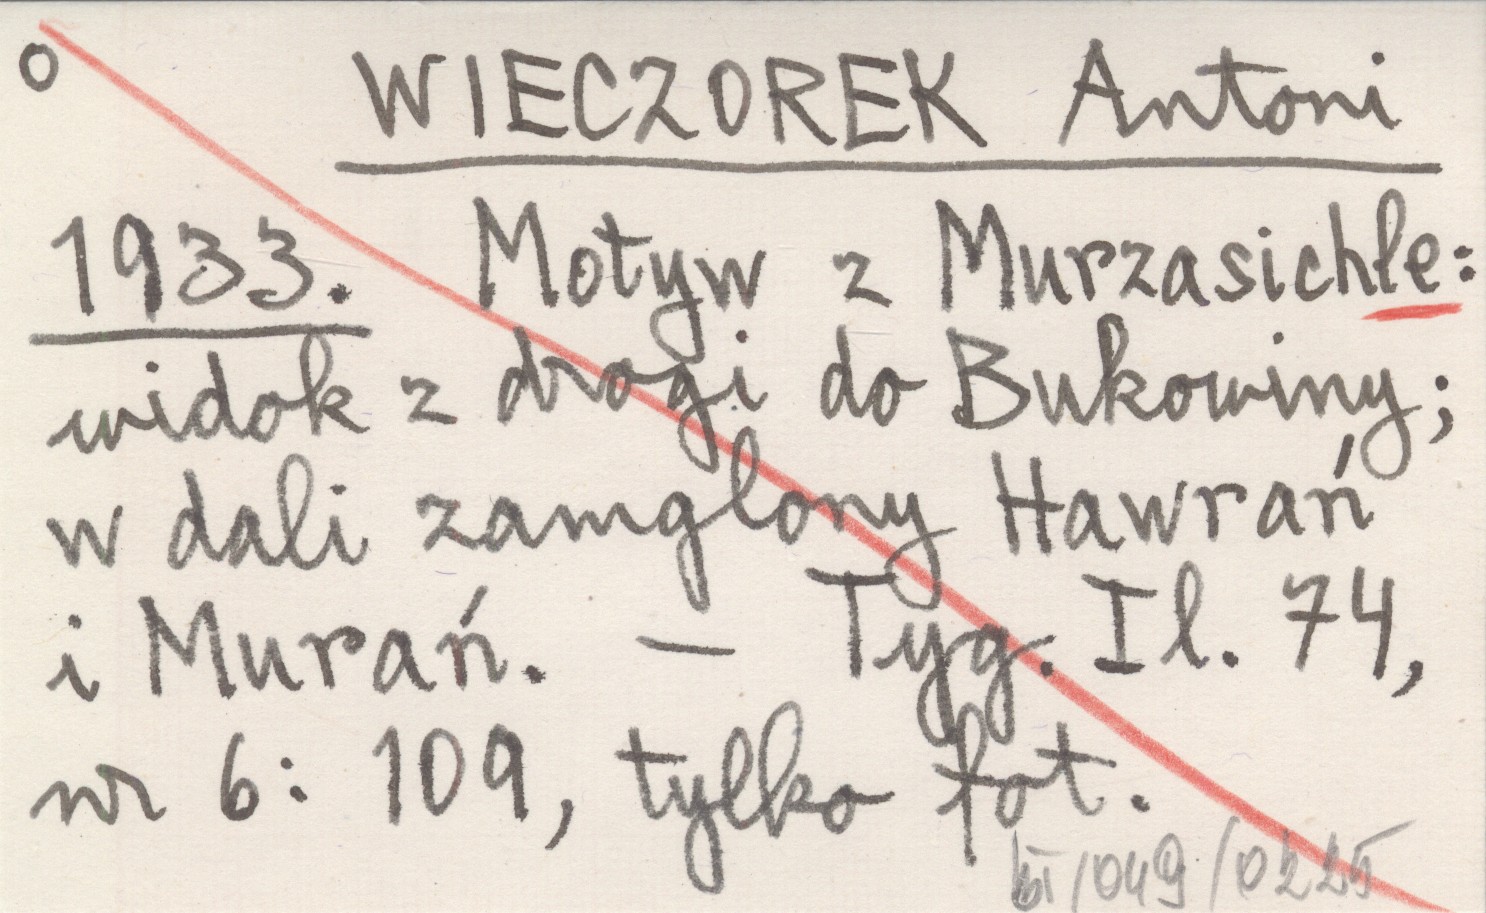 o WIECZOREK Antoni
1933. Motyw z Murzasichle:
widok z drogi do Bukowiny;
w dali zamglony Hawrań
i Murań. — Tyg. Il. 74,
nr 6: 109, tylko fot.
/049/0225